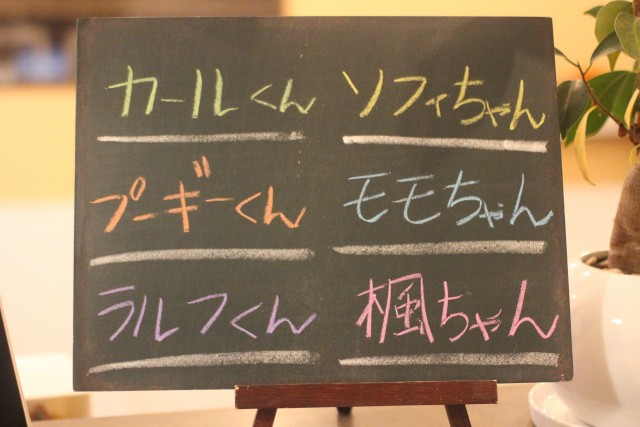 カールくん ソフィちゃん
プーギーくん モモちゃん
ラルフくん 楓ちゃん